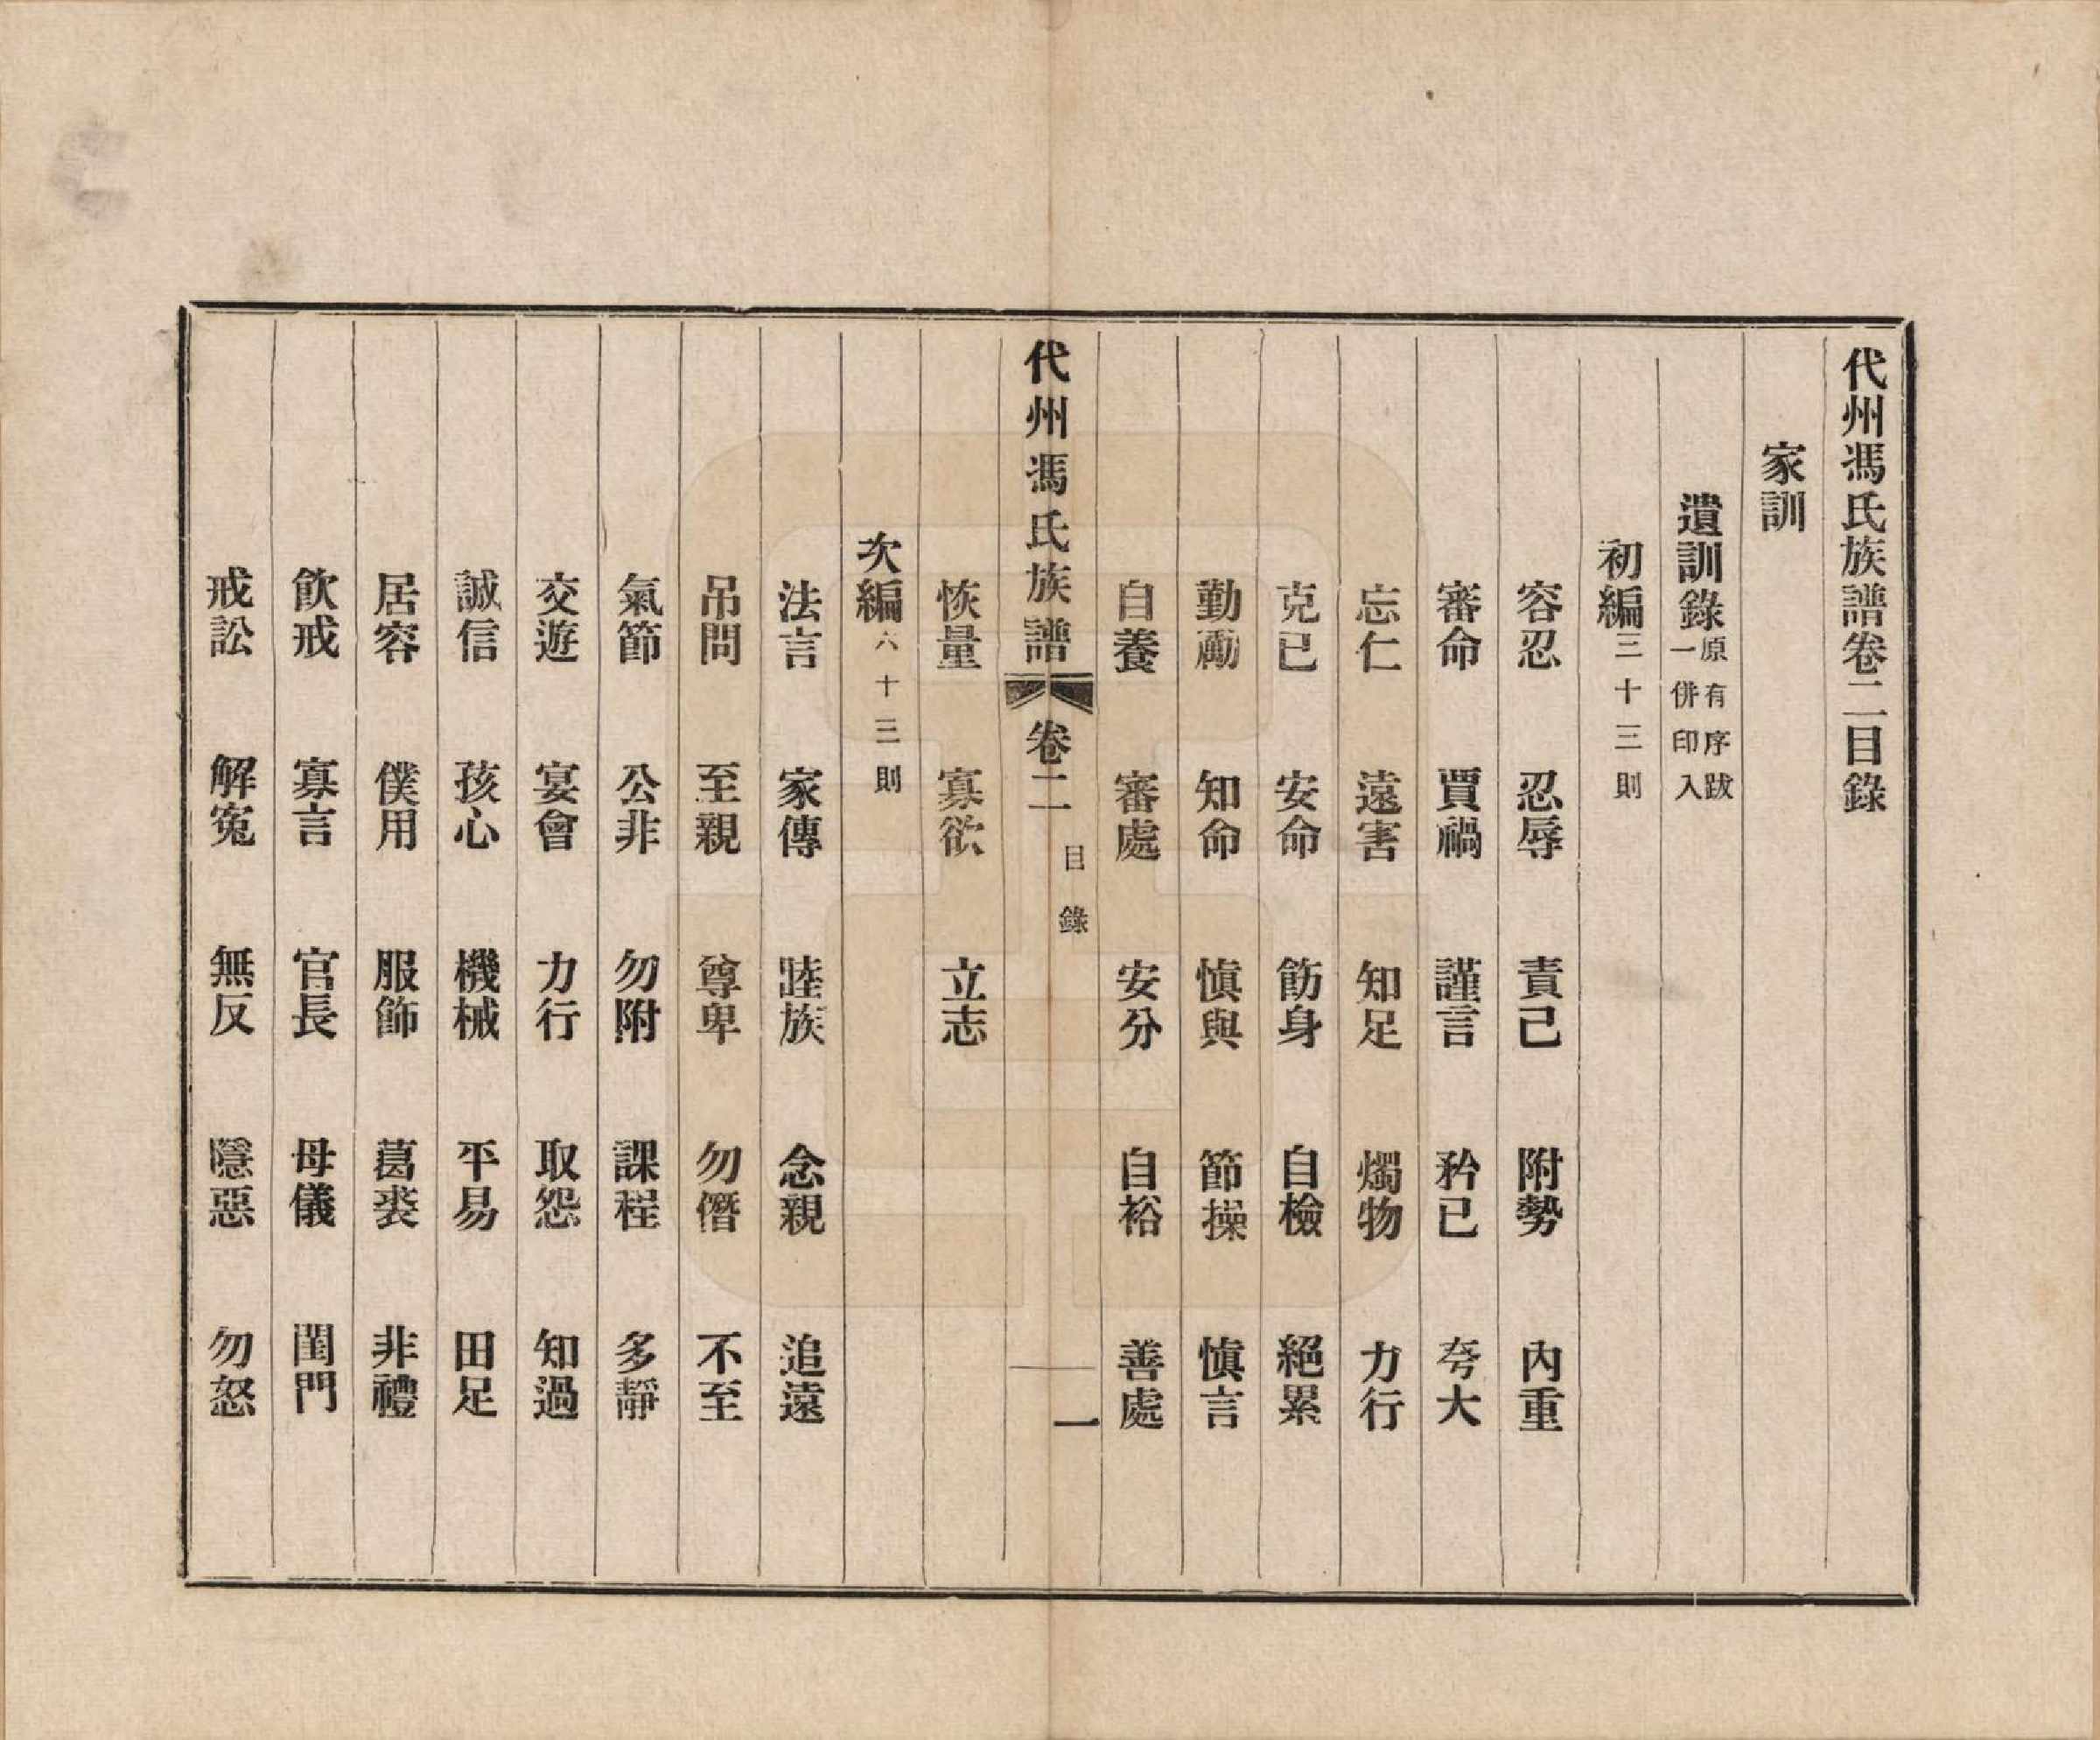 代州馮氏族譜卷二目錄
家訓
遺訓錄原有序跋一併印入
初編三十三則
容忍 忍辱 責己 附勢 內重
審命 賈禍 謹言 矜已 夸大
忘仁 遠害 知足 燭物 力行
克已 安命 飭身 自檢 絕累
勤勵 知命 慎與 節操 慎言
自養 審處 安分 自裕 善處
代州馮氏族譜 卷二 目錄 一
恢量 寡欲 立志
次編六十三則
法言 家傳 睦族 念親 追遠
吊問 至親 尊卑 勿僭 不至
氣節 公非 勿附 課程 多靜
交遊 宴會 力行 取怨 知過
誠信 孩心 機械 平易 田足
居容 僕用 服飾 葛裘 非禮
飲戒 寡言 官長 母儀 閨門
戒訟 解冤 無反 隱惡 勿怒